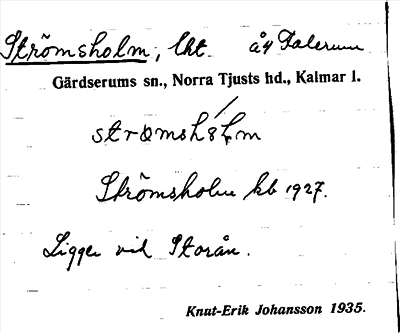 Strömsholm, lht. å4 Falerum
Gärdserums sn., Norra Tjusts hd., Kalmar l.
strömshólm
Strömsholm kb 1927.
Ligger vid Storån.
Knut-Erik Johansson 1935.